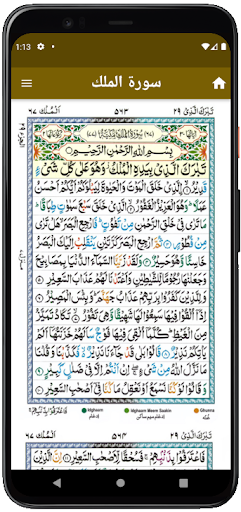 1:13
سورة الملك
تَبٰرَكَ الَّذِیْ ٢٩ ٥٦٣ اَلْمُلْك ٦٧
سُوْرَةُ الْمُلْكِ مَكِّيَّةٌ
بِسْمِ اللّٰهِ الرَّحْمٰنِ الرَّحِيْمِ
تَبٰرَكَ الَّذِیْ بِيَدِهِ الْمُلْكُ وَهُوَ عَلٰى كُلِّ شَیْءٍ
قَدِيْرُ الَّذِیْ خَلَقَ الْمَوْتَ وَالْحَيٰوةَ لِيَبْلُوَكُمْ اَيُّكُمْ اَحْسَنُ
عَمَلًا وَهُوَ الْعَزِيْزُ الْغَفُوْرُ الَّذِیْ خَلَقَ سَبْعَ سَمٰوٰتٍ طِبَاقًا
مَا تَرٰى فِیْ خَلْقِ الرَّحْمٰنِ مِنْ تَفٰوُتٍ فَارْجِعِ الْبَصَرَ هَلْ تَرٰى
مِنْ فُطُوْرٍ ثُمَّ ارْجِعِ الْبَصَرَ كَرَّتَيْنِ يَنْقَلِبْ اِلَيْكَ الْبَصَرُ
خَاسِئًا وَّهُوَ حَسِيْرٌ وَلَقَدْ زَيَّنَّا السَّمَآءَ الدُّنْيَا بِمَصَابِيْحَ
وَجَعَلْنٰهَا رُجُوْمًا لِّلشَّيٰطِيْنِ وَاَعْتَدْنَا لَهُمْ عَذَابَ السَّعِيْرِ
وَلِلَّذِيْنَ كَفَرُوْا بِرَبِّهِمْ عَذَابُ جَهَنَّمَ وَبِئْسَ الْمَصِيْرُ
اِذَآ اُلْقُوْا فِيْهَا سَمِعُوْا لَهَا شَهِيْقًا وَّهِیَ تَفُوْرُ تَكَادُ تَمَيَّزُ
مِنَ الْغَيْظِ كُلَّمَآ اُلْقِیَ فِيْهَا فَوْجٌ سَاَلَهُمْ خَزَنَتُهَآ اَلَمْ
يَاْتِكُمْ نَذِيْرٌ قَالُوْا بَلٰى قَدْ جَآءَنَا نَذِيْرٌ فَكَذَّبْنَا وَقُلْنَا
مَا نَزَّلَ اللّٰهُ مِنْ شَیْءٍ اِنْ اَنْتُمْ اِلَّا فِیْ ضَلٰلٍ كَبِيْرٍ
وَقَالُوْا لَوْ كُنَّا نَسْمَعُ اَوْ نَعْقِلُ مَا كُنَّا فِیْٓ اَصْحٰبِ السَّعِيْرِ
فَاعْتَرَفُوْا بِذَنْۢبِهِمْ
Idghaam Idghaam Meem Saakin Ghunna
تَبٰرَكَ الَّذِیْ ٢٩ ٥٦٤ اَلْمُلْك ٦٧
فَاعْتَرَفُوْا بِذَنْۢبِهِمْ فَسُحْقًا لِّاَصْحٰبِ السَّعِيْرِ